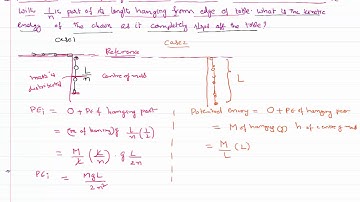 with 1/n is part of its length hanging from edge of table. what is the kinetic
energy of the chain as it completely slips off the table?
Case 1
Case 2
Reference
mass is distributed
L/n
centre of mass
L
PEi = 0 + PE of hanging part
= (m of hanging) g L/n (1/2)
= M/L (L/n) · g L/2n
PEi = MgL/2n²
Potential energy = 0 + PE of hanging part
= M of hanging (g) h of centre of mass
= M/L (L)